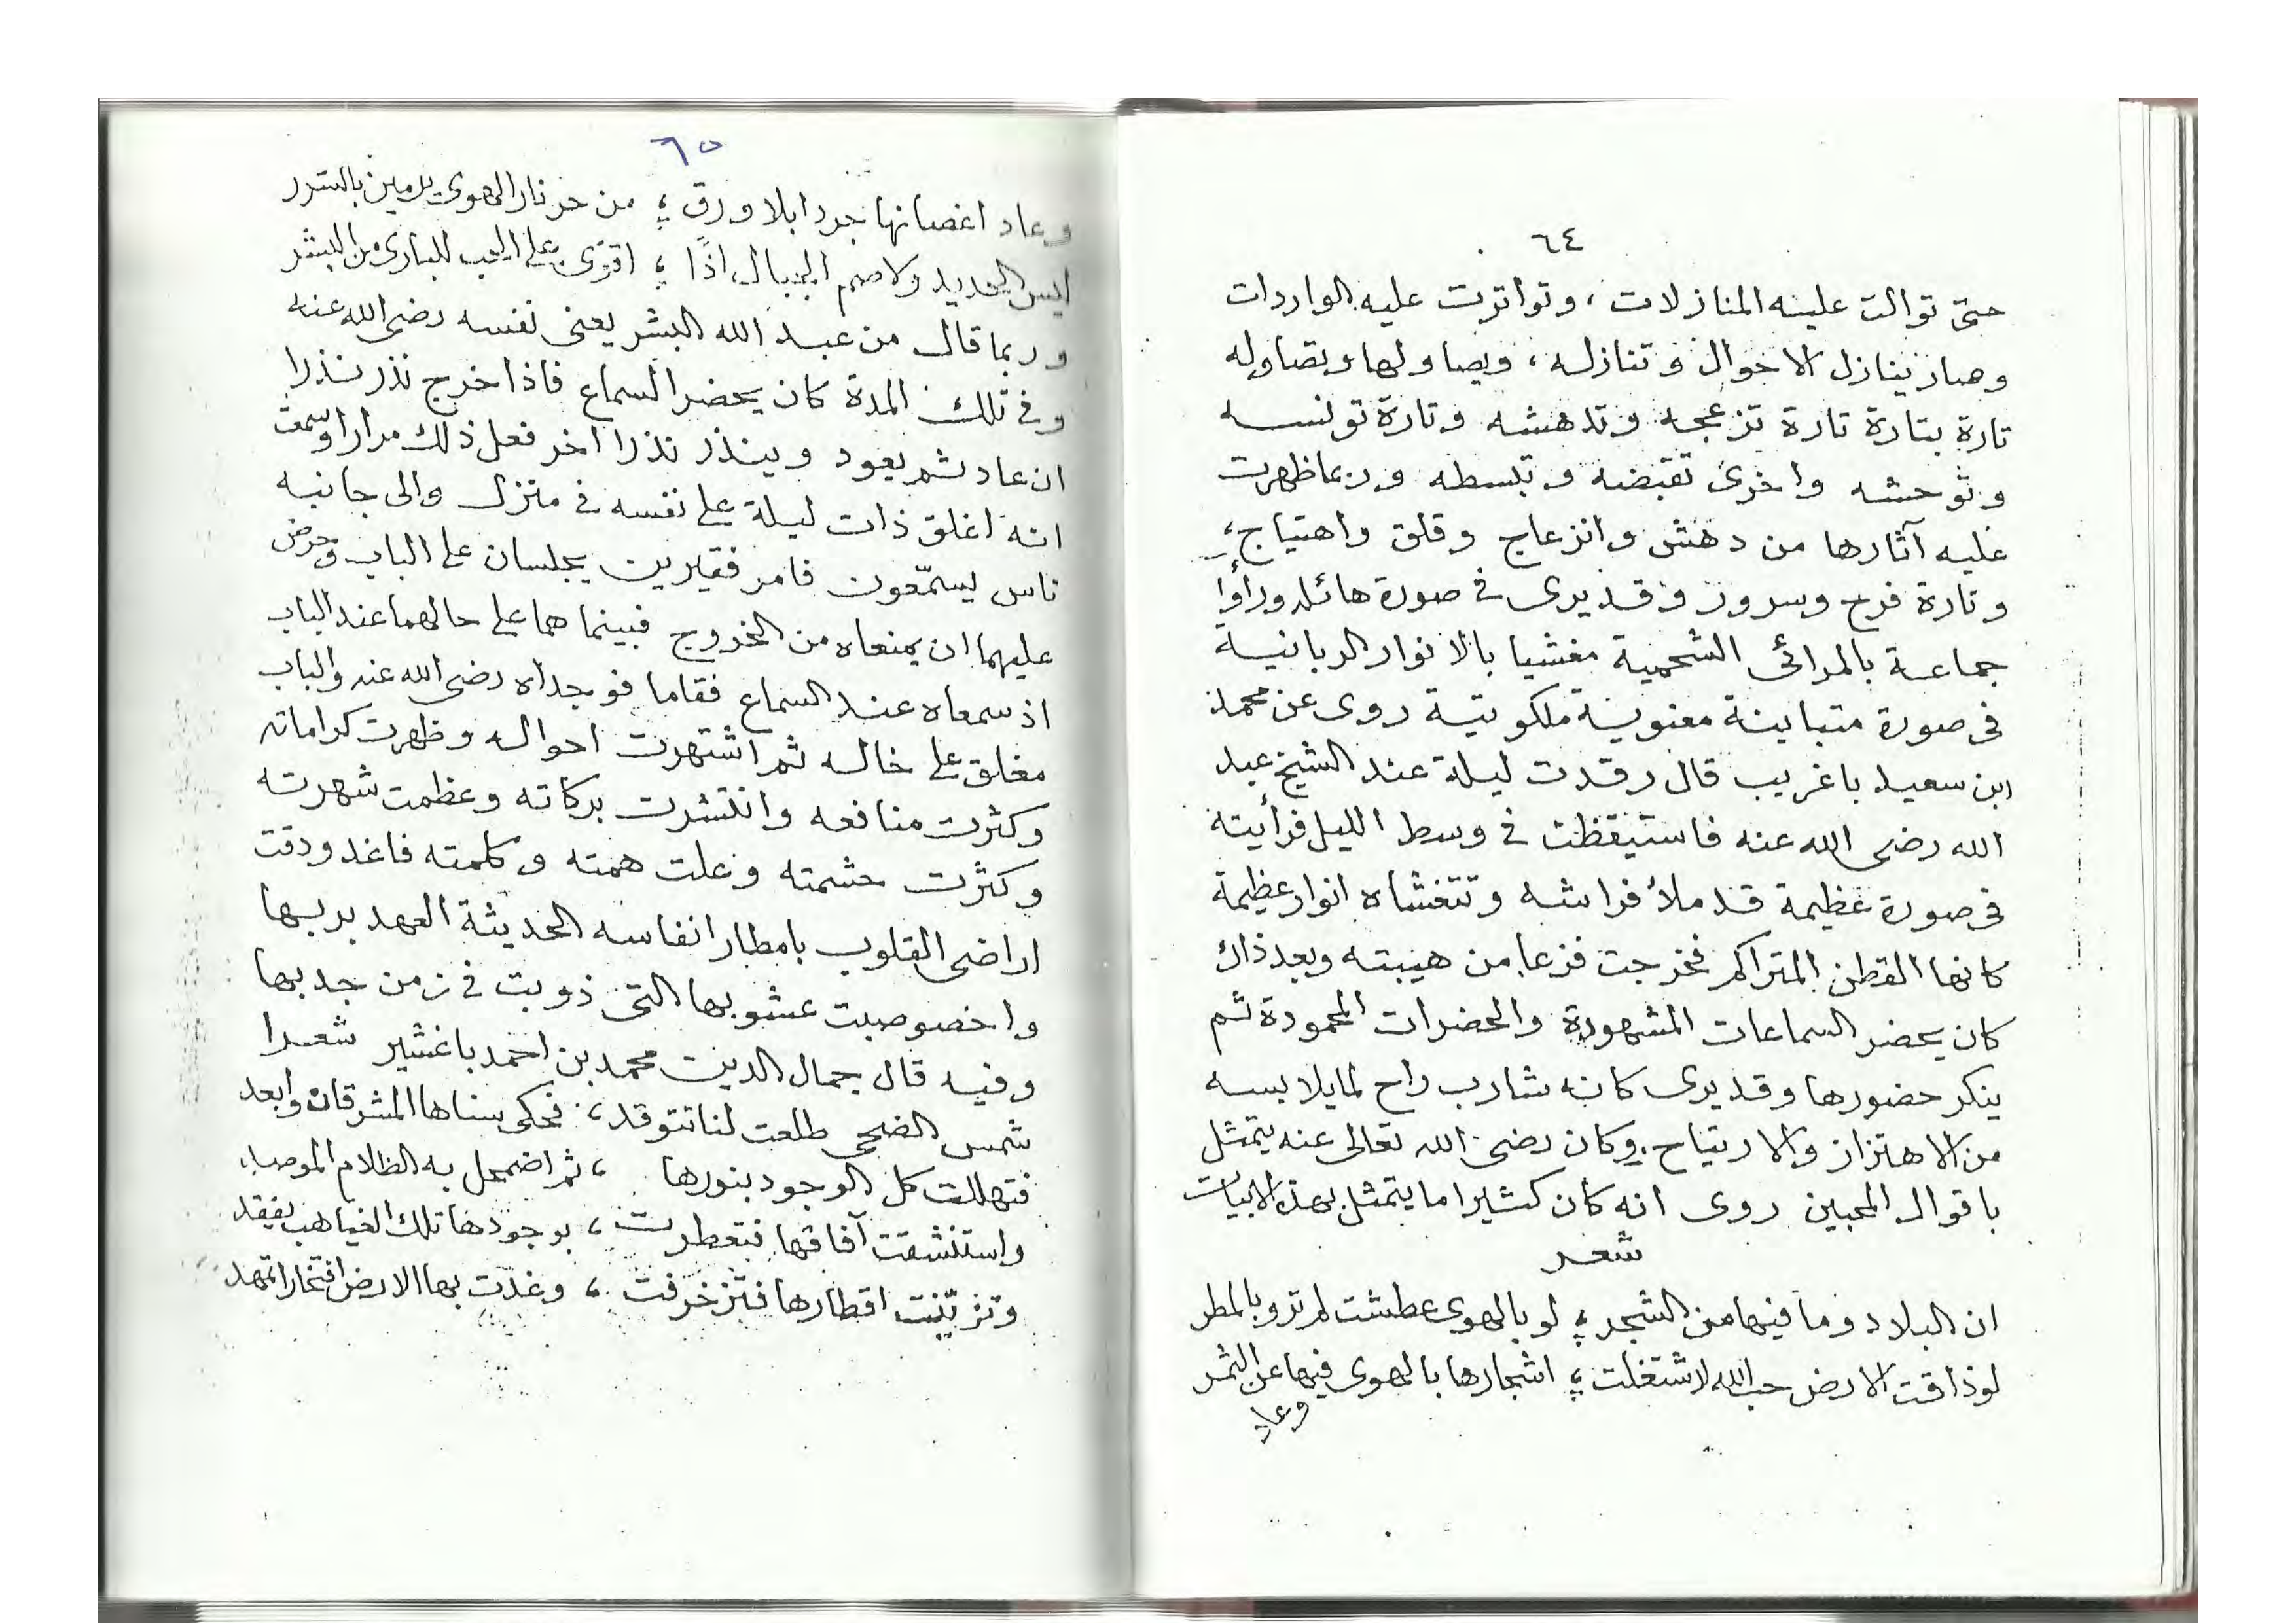 ٦٤
حتى توالت عليه المنازلات ، وتواترت عليه الواردات
وصار ينازل الاحوال وتنازله ، ويصاولها وتصاوله
تارة بتارة تارة تزعجه وتدهشه وتارة تونسه
وتوحشه واخرى تقبضه وتبسطه وربما ظهرت
عليه آثارها من دهش وانزعاج وقلق واهتياج ،
وتارة فرح وسرور وقد يرى في صورة هائله ورأوا
جماعة بالمرائى الشحمية مغشيا بالانوار الربانية
في صورة متباينة معنوية ملكوتية روى عن محمد
ابن سعيد باغريب قال رقدت ليلة عند الشيخ عبد
الله رضى الله عنه فاستيقظت في وسط الليل فرأيته
في صورة عظيمة قد ملأ فراشه وتتغشاه انوار عظيمة
كانها القطن المتراكم فخرجت فزعا من هيبته وبعد ذاك
كان يحضر السماعات المشهودة والحضرات المحمودة ثم
ينكر حضورها وقد يرى كانه شارب راح لما يلابسه
من الاهتزاز والارتياح . وكان رضى الله تعالى عنه يتمثل
باقوال المحبين روى انه كان كثيرا ما يتمثل بهذه الابيات
شعر
ان البلاد وما فيها من الشجر ؛ لو بالهوى عطشت لم ترو بالمطر
لو ذاقت الارض حب الله لاشتغلت ؛ اشجارها بالهوى فيها عن الثمر
وعاد
٦٥
وعاد اغصانها جردا بلا ورق ؛ من حر نار الهوى يرمين بالشرر
ليس الحديد ولا صم الجبال اذًا ؛ اقوى على الحب للبارى من البشر
وربما قال من عبد الله البشر يعنى نفسه رضى الله عنه
وفي تلك المدة كان يحضر السماع فاذا خرج نذر نذرا
ان عاد ثم يعود وينذر نذرا اخر فعل ذلك مرارا وسمعت
انه اغلق ذات ليلة على نفسه في منزل والى جانبه
ناس يسمّعون فامر فقيرين يجلسان على الباب وحرض
عليهما ان يمنعاه من الخروج فبينما هما على حالهما عند الباب
اذ سمعاه عند السماع فقاما فوجداه رضى الله عنه والباب
مغلق على حاله ثم اشتهرت احواله وظهرت كراماته
وكثرت منافعه وانتشرت بركاته وعظمت شهرته
وكثرت حشمته وعلت همته وكلمته فاغدودقت
اراضى القلوب بامطار انفاسه الحديثة العهد بربها
واخصوصبت عشوبها التى ذويت في زمن جدبها
وفيه قال جمال الدين محمد بن احمد باغشير شعرا
شمس الضحى طلعت لنا تتوقد ، فحكى سناها المشرقان وابعد
فتهللت كل الوجود بنورها ، ثم اضمحل به الظلام الموصد
واستنشقت آفاقها فتعطرت ، بوجودها تلك الغياهب يفقد
وتزيّنت اقطارها فتزخرفت ، وغدت بها الارض افتخارا تمهد